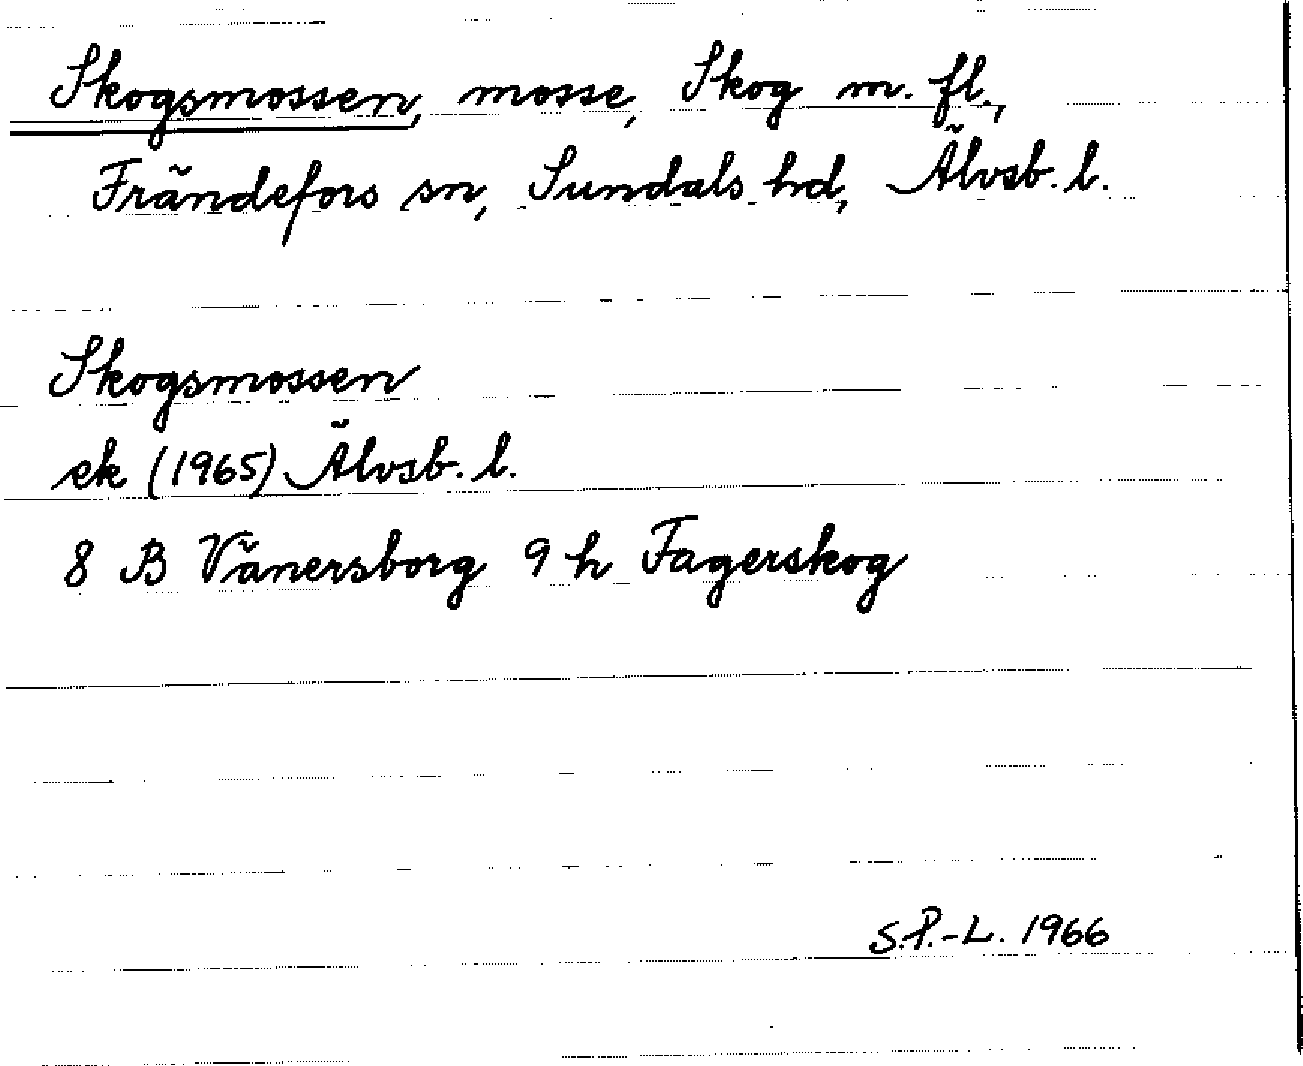 Skogsmossen, mosse, Skog m. fl.,
Frändefors sn, Sundals hd, Älvsb. l.
Skogsmossen
ek (1965) Älvsb. l.
8 B Vänersborg 9 h Fagerskog
S.P.-L. 1966